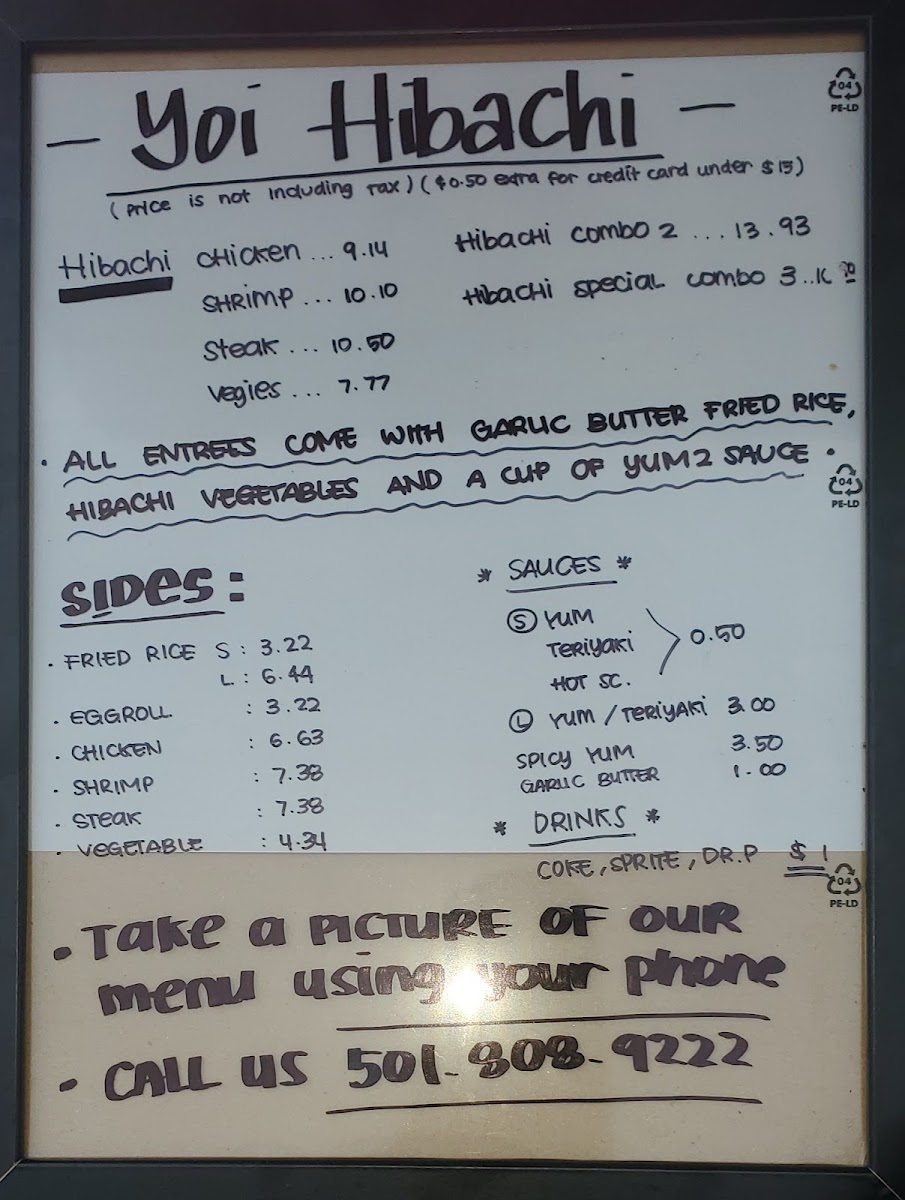 - Yoi Hibachi -
(Price is not including tax) ($0.50 extra for credit card under $15)
Hibachi chicken ... 9.14
Shrimp ... 10.10
Steak ... 10.50
Vegies ... 7.77
Hibachi combo 2 ... 13.93
Hibachi special combo 3 ..
• ALL ENTREES COME WITH GARLIC BUTTER FRIED RICE,
HIBACHI VEGETABLES AND A CUP OF YUM2 SAUCE •
SIDES:
• FRIED RICE S : 3.22
L : 6.44
• EGGROLL : 3.22
• CHICKEN : 6.63
• SHRIMP : 7.38
• STEAK : 7.38
• VEGETABLE : 4.34
* SAUCES *
(S) YUM
TERIYAKI
HOT SC.
0.50
(L) YUM / TERIYAKI 3.00
SPICY YUM 3.50
GARLIC BUTTER 1.00
* DRINKS *
COKE, SPRITE, DR.P $1
• Take a PICTURE OF OUR
menu using your phone
• CALL US 501-808-9222
04
PE-LD
04
PE-LD
04
PE-LD